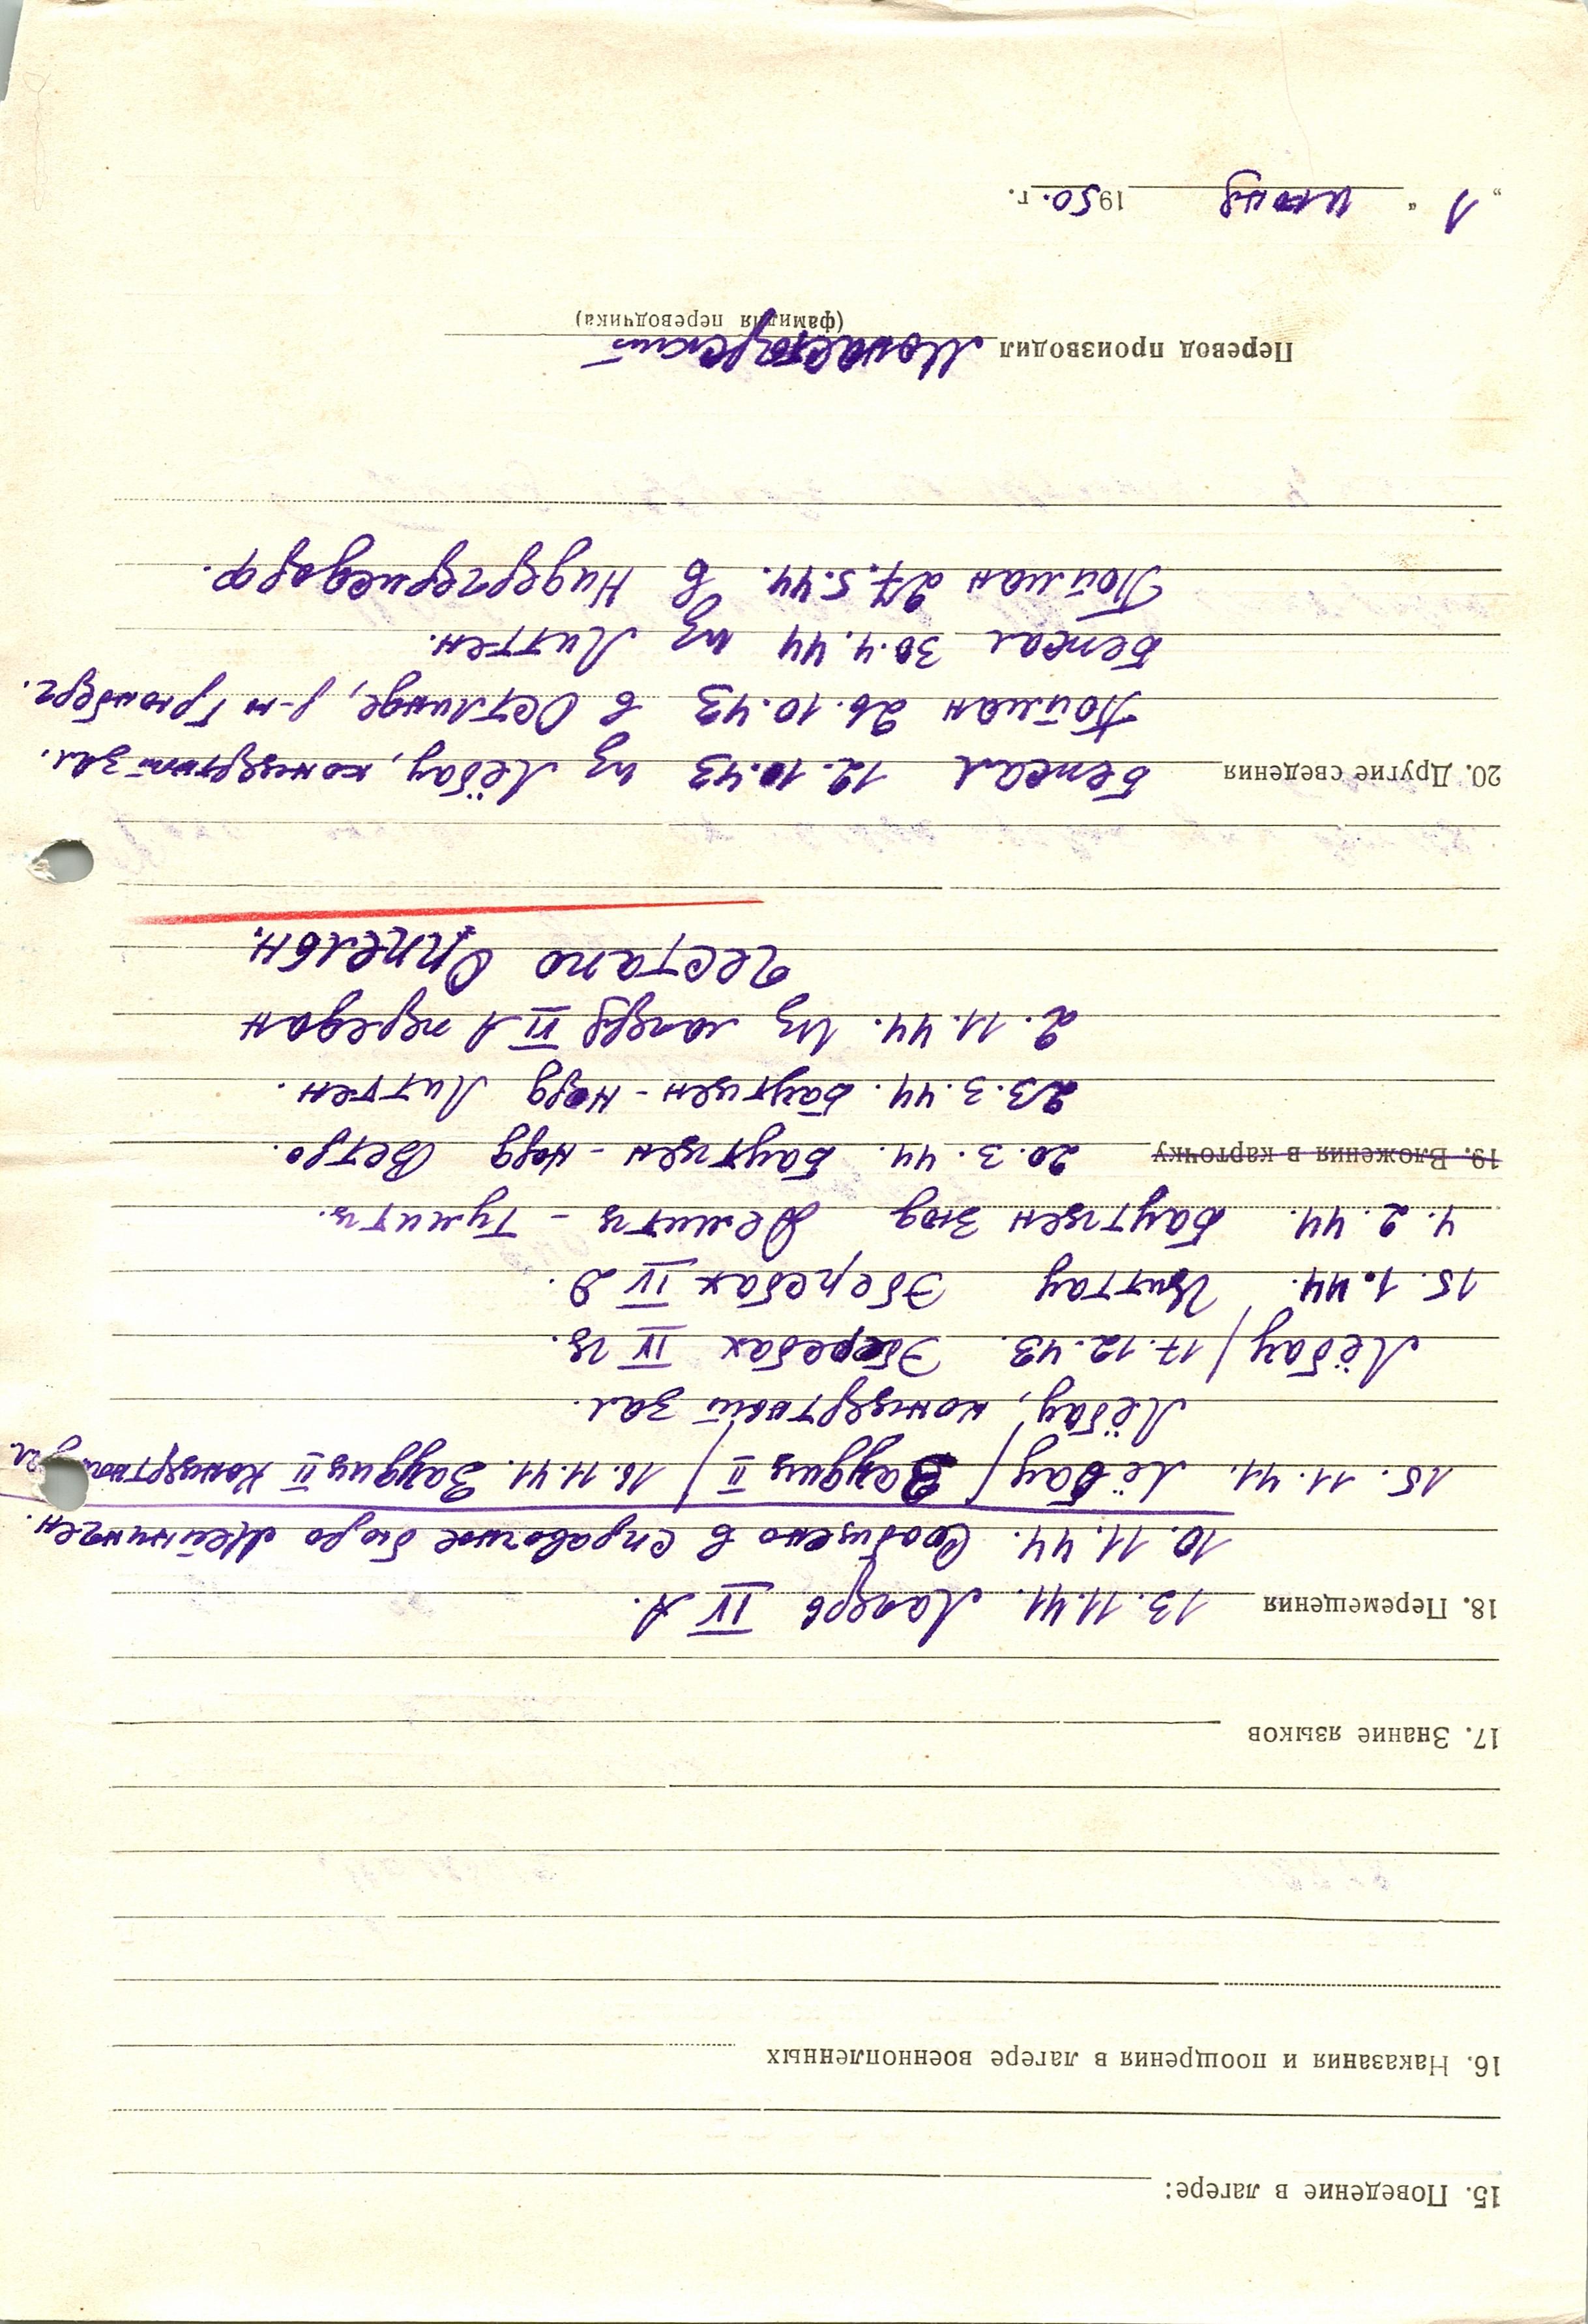 15. Поведение в лагере:
16. Наказания и поощрения в лагере военнопленных
17. Знание языков
18. Перемещения 13.11.41. Лагерь IV А.
10.11.44. Сообщено в справочное бюро Мейнинген.
15.11.41. Лёбау / Заудиц II / 16.11.41. Заудиц II Концертный зал
Лёбау, концертный зал.
Лёбау / 17.12.43. Эберсбах IV Ц.
15.1.44. Циттау Эберсбах IV Д.
4.2.44. Баутцен зюд Демитц - Тумитц.
19. Вложения в карточку 20.3.44. Баутцен - норд Ветро.
23.3.44. Баутцен - норд Литтен.
2.11.44. Из лагеря VI А передан
гестапо Оппельн.
20. Другие сведения Бежал 12.10.43 из Лёбау, концертный зал.
Пойман 26.10.43 в Остлинде, р-н Грюнберг.
Бежал 30.4.44 из Литтен.
Пойман 27.5.44. в Нидергерщедорф.
Перевод производил Монастырский
(фамилия переводчика)
„ 1 “ июня 1950. г.